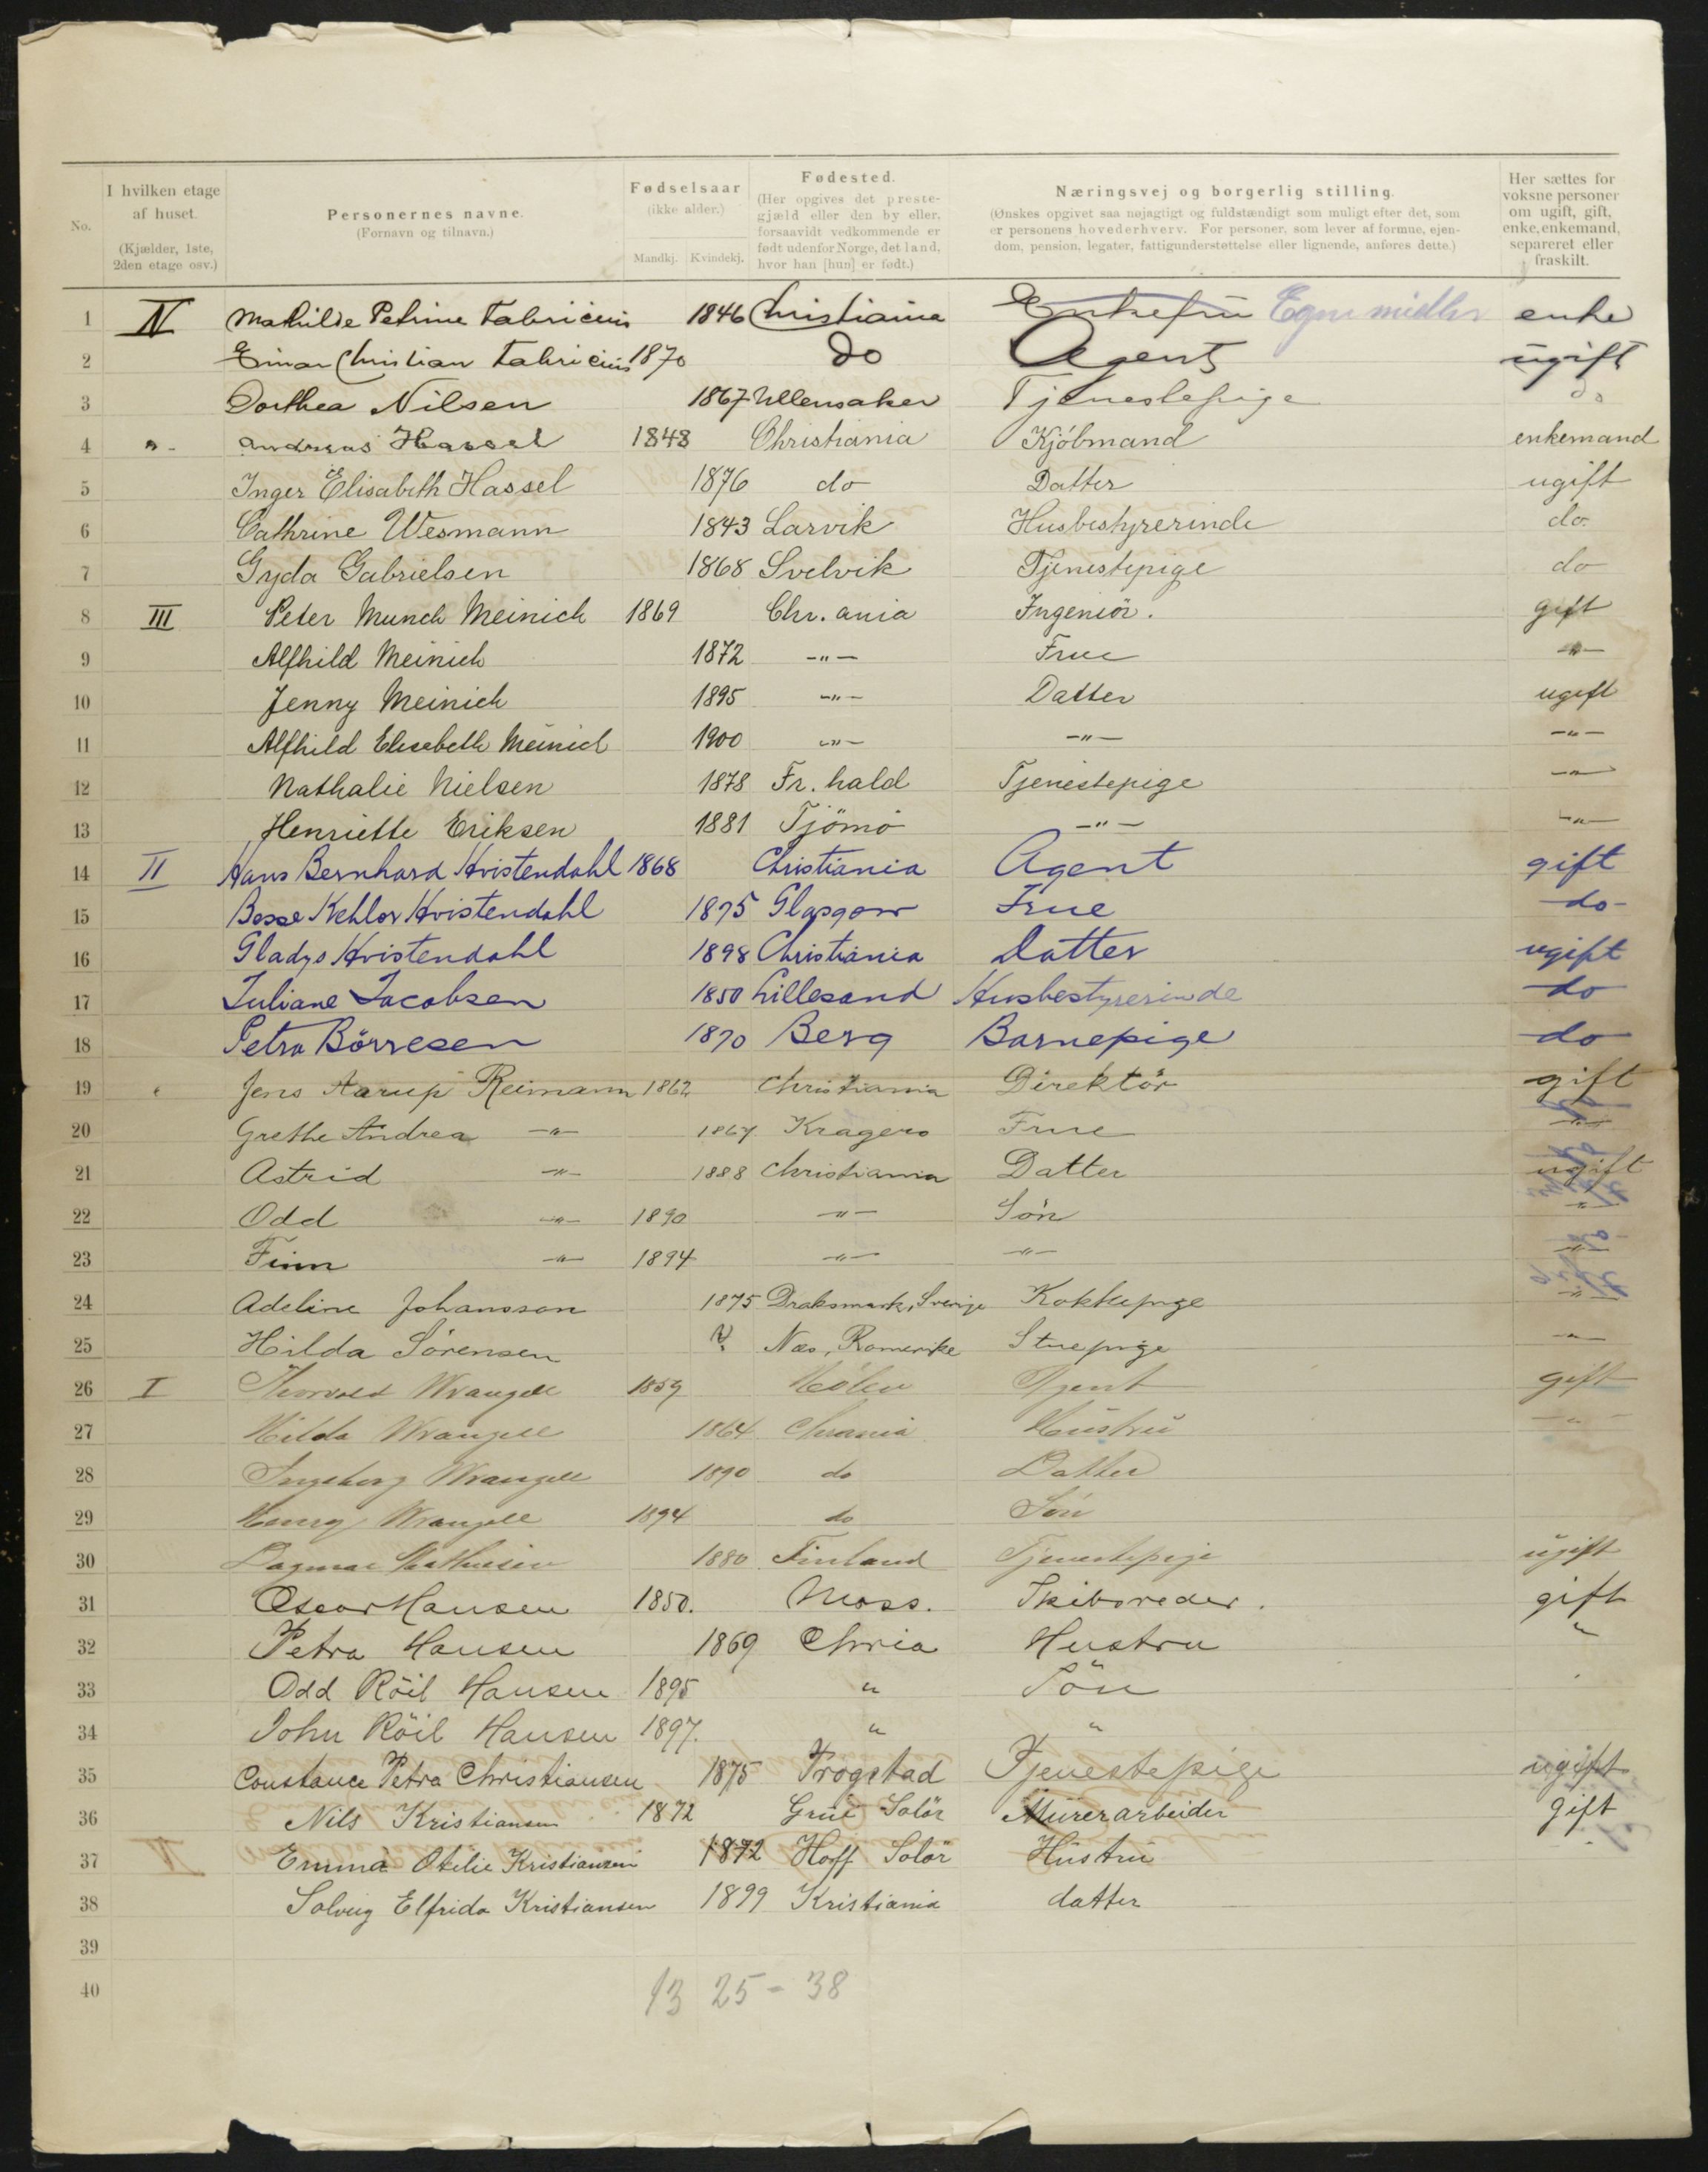 No. I hvilken etage af huset. (Kjælder, 1ste, 2den etage osv.) Personernes navne. (Fornavn og tilnavn.) Fødselsaar (ikke alder.) Mandkj. Kvindekj. Fødested. (Her opgives det prestegjæld eller den by eller, forsaavidt vedkommende er født udenfor Norge, det land, hvor han [hun] er født.) Næringsvej og borgerlig stilling. (Ønskes opgivet saa nøjagtigt og fuldstændigt som muligt efter det, som er personens hovederhverv. For personer, som lever af formue, ejendom, pension, legater, fattigunderstøttelse eller lignende, anføres dette.) Her sættes for voksne personer om ugift, gift, enke, enkemand, separeret eller fraskilt.
1 IV Mathilde Petrine Fabricius 1846 Christiania Enkefru Egne midler enke
2 Einar Christian Fabricius 1870 do Agent ugift
3 Dorthea Nilsen 1867 Ullensaker Tjenestepige do
4 " - Andreas Hassel 1848 Christiania Kjöbmand enkemand
5 Inger Elisabeth Hassel 1876 do Datter ugift
6 Cathrine Wesmann 1843 Larvik Husbestyrerinde do.
7 Gyda Gabrielsen 1868 Svelvik Tjenestepige do
8 III Peter Munch Meinich 1869 Chr.ania Ingeniör. gift
9 Alfhild Meinich 1872 -"- Frue -"-
10 Jenny Meinich 1895 -"- Datter ugift
11 Alfhild Elisabeth Meinich 1900 -"- -"- -"-
12 Nathalie Nielsen 1878 Fr. hald Tjenestepige -"-
13 Henriette Eriksen 1881 Tjömö -"- -"-
14 II Hans Bernhard Kvistendahl 1868 Christiania Agent gift
15 Besse Kehlor Kvistendahl 1875 Glasgow Frue do-
16 Gladys Kvistendahl 1898 Christiania Datter ugift
17 Juliane Jacobsen 1850 Lillesand Husbestyrerinde do
18 Petra Börresen 1870 Berg Barnepige do
19 " Jens Aarup Reimann 1862 Christiania Direktör gift
20 Grethe Andrea -"- 1867 Kragerø Frue -"-
21 Astrid -"- 1888 Christiania Datter ugift
22 Odd -"- 1890 -"- Sön -"-
23 Finn -"- 1894 -"- -"- -"-
24 Adeline Johansson 1875 Draksmark, Sverige Kokkepige -"-
25 Hilda Sörensen ? Næs, Romerike Stuepige -"-
26 I Thorvald Wrangell 1859 Hölen Agent gift
27 Hilda Wrangell 1864 Chrania Hustru -"-
28 Ingeborg Wrangell 1890 do Datter
29 Henry Wrangell 1894 do Sön
30 Dagmar Mathiesen 1880 Finland Tjenestepige ugift
31 Oscar Hansen 1850. Moss. Skibsreder. gift
32 Petra Hansen 1869 Chria Hustru "
33 Odd Röil Hansen 1895 " Sön
34 John Röil Hansen 1897. " "
35 Constance Petra Christiansen 1875 Trogstad Tjenestepige ugift
36 Nils Kristiansen 1872 Grue Solör Murerarbeider gift
37 Emma Otelie Kristiansen 1872 Hoff Solör Hustru
38 Solveig Elfrida Kristiansen 1899 Kristiania datter
39
40
13 25 - 38